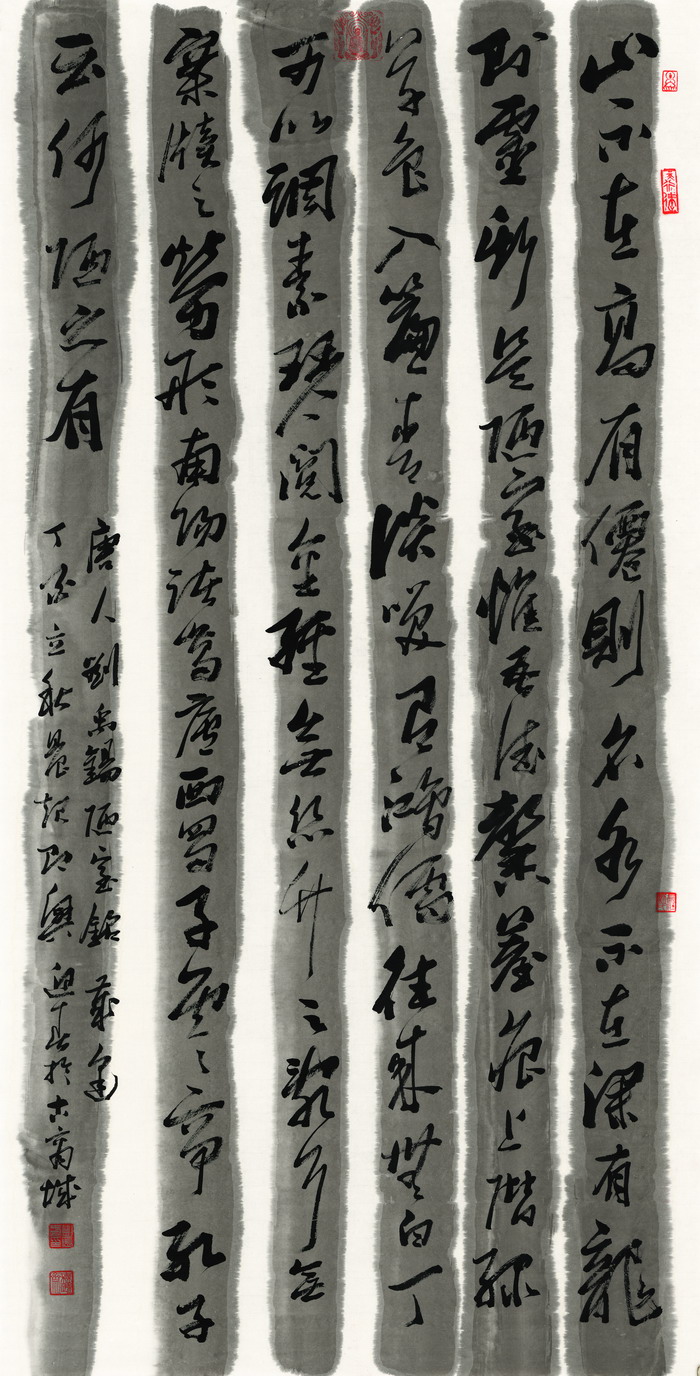 山不在高有僊則名水不在深有龍
則靈斯是陋室惟吾德馨苔痕上階綠
草色入簾青談笑有鴻儒往來無白丁
可以調素琴閱金經無絲竹之亂耳無
案牘之勞形南陽諸葛廬西蜀子雲之亭孔子
云何陋之有
唐人劉禹錫陋室銘歲逢
丁酉立秋晨起即興迎春於古商城